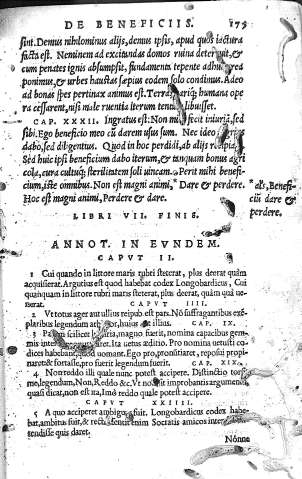 DE BENEFICIIS. 175
sint. Demus nihilominus alijs, demus ipsis, apud quos iactura
facta est. Neminem ad excitandas domos ruina deterruit, & cum
cum penates ignis absumpsit, fundamenta tepente adhuc area
ponimus, & urbes haustas sæpius eodem solo condimus. Adeo
ad bonas spes pertinax animus est. Terra, humanæ ope
ra cessarent, nisi male ruentia iterum libuisset.
CAP. XXXII. Ingratus est: Non mihi fecit iniuriã, sed
sibi. Ego beneficio meo cũ darem usus sum. Nec ideo
dabo, sed diligentius. Quod in hoc perdidi, ab alijs
Sed huic ipsi beneficium dabo iterum, & tanquam bonus agri
cola, cura cultuq; sterilitatem soli uincam. Perit mihi benefi-
cium, iste omnibus. Non est magni animi, * Dare & perdere.
Hoc est magni animi, Perdere & dare.
* als, Benefi-
ciũ dare &
perdere.
LIBRI VII. FINIS.
ANNOT. IN EVNDEM.
CAPVT II.
1 Cui quando in littore maris rubri steterat, plus deerat quàm
acquisierat. Argutius est quod habebat codex Longobardicus, Cui
quinquam in littore rubri maris steterat, plus deerat, quàm quã
steterat. CAPVT IIII.
2 Vt totus ager aut ullius reipub. est pars. Nõ suffragantibus exẽ-
plaribus legendum huius & illius. CAP. IX.
3 scilicet magno fuerit, nomina capacibus gem
mis inter est. Ita uetus æditio. Pro nomina uetusti co
dices habebant, uomant. Ego pro, pronuntiaret, reposui propi
naret: & fortasse, pro fuerit legendum fuerit. CAP. XIX.
4 Non reddo illi quale nunc potest accipere. Distinctio
legendum, Non, Reddo &c. Vt improbantis argumentũ,
quasi dicat, non est ita, Imò reddo quale potest accipere.
CAPVT XXIIII.
5 A quo acciperet ambiguũ fuit. Longobardicus codex habe
bat, ambitus fuit, & enim Socratis amicos inter
tendisse quis daret.
Nónne